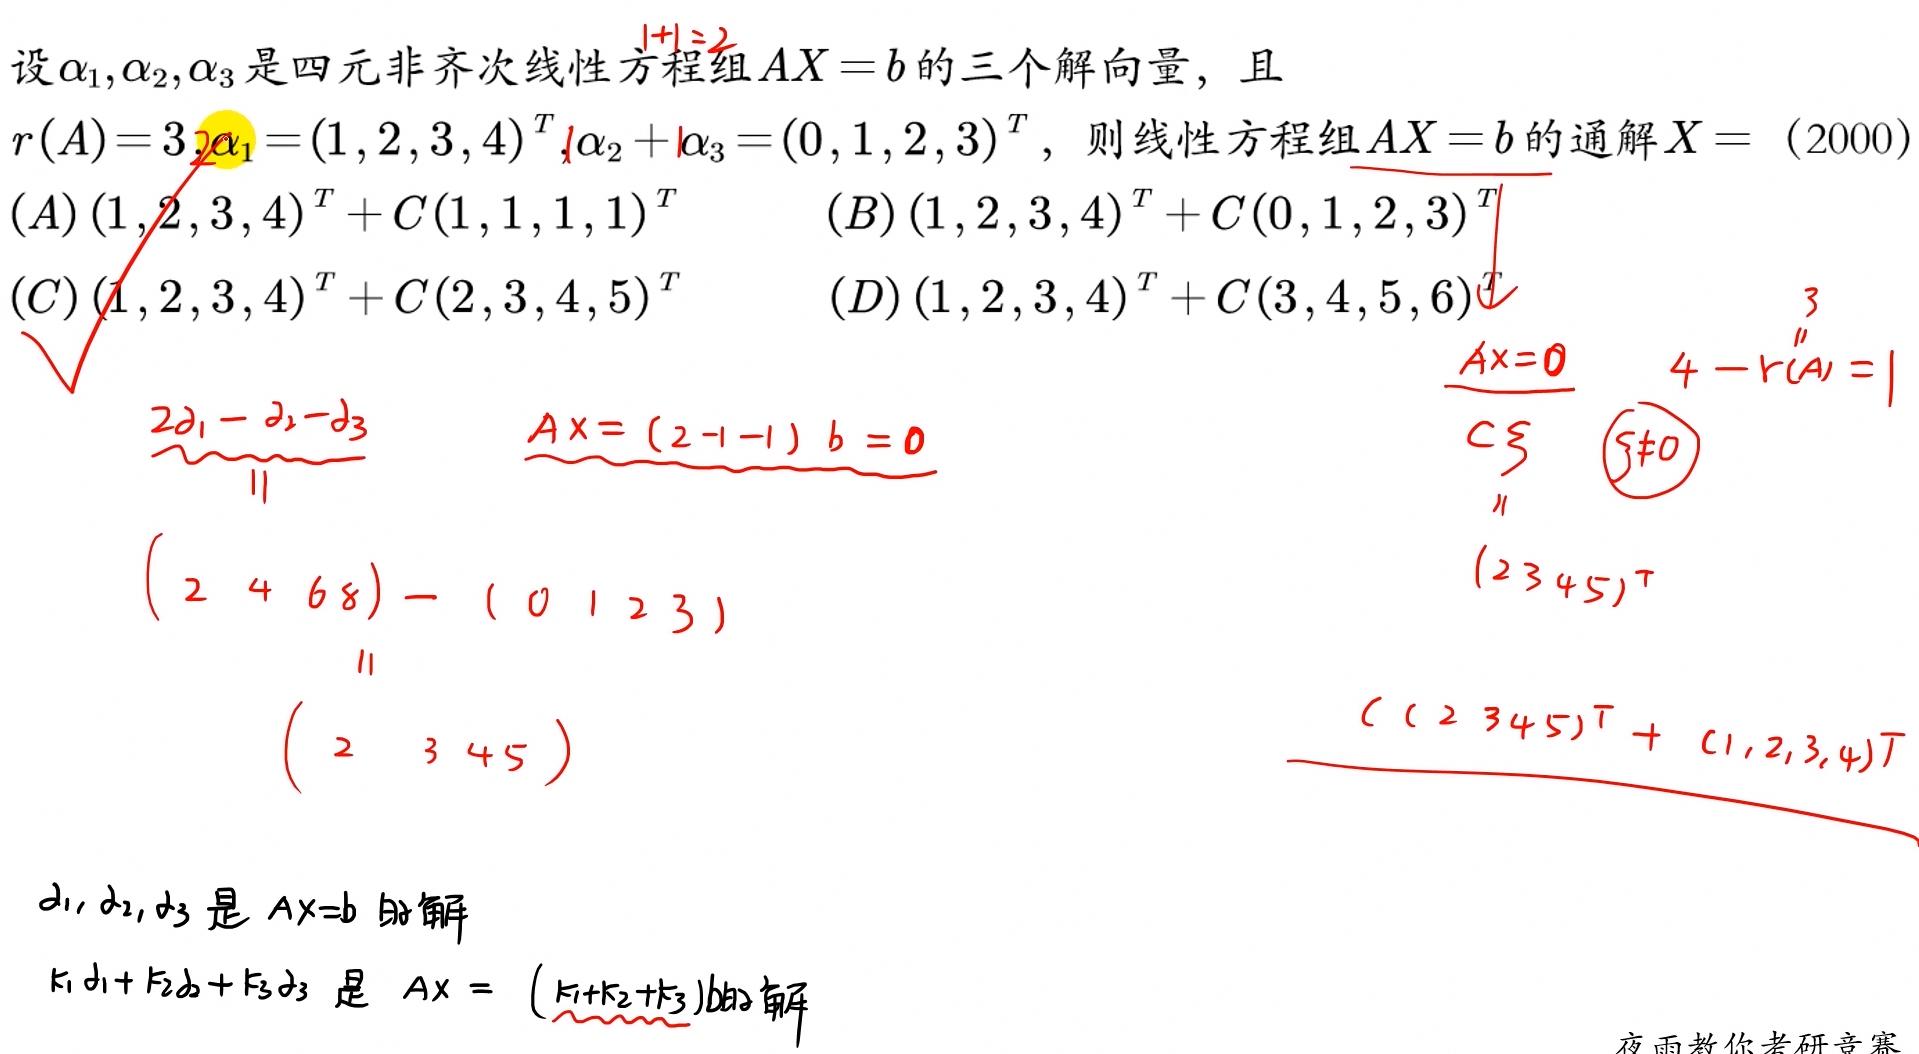 1+1=2
设α₁,α₂,α₃是四元非齐次线性方程组AX=b的三个解向量，且
r(A)=3,α₁=(1,2,3,4)ᵀ,α₂+α₃=(0,1,2,3)ᵀ，则线性方程组AX=b的通解X=（2000）
2 1 1
(A)(1,2,3,4)ᵀ+C(1,1,1,1)ᵀ (B)(1,2,3,4)ᵀ+C(0,1,2,3)ᵀ
(C)(1,2,3,4)ᵀ+C(2,3,4,5)ᵀ (D)(1,2,3,4)ᵀ+C(3,4,5,6)ᵀ
3
"
AX=0 4-r(A)=1
2α₁-α₂-α₃ AX=(2-1-1)b=0
Cξ ξ≠0
=
(2 3 4 5)ᵀ
(2 4 6 8)-(0 1 2 3)
=
(2 3 4 5)
C(2 3 4 5)ᵀ+(1,2,3,4)ᵀ
α₁,α₂,α₃是AX=b的解
k₁α₁+k₂α₂+k₃α₃是AX=(k₁+k₂+k₃)b的解
夜雨教你考研竞赛